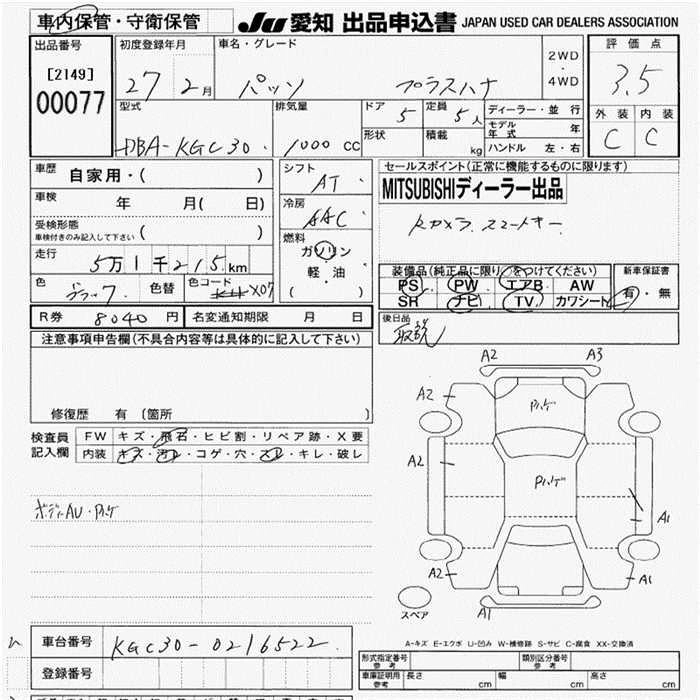 車内保管・守衛保管 JU 愛知 出品申込書 JAPAN USED CAR DEALERS ASSOCIATION
出品番号 初度登録年月 車名・グレード 2WD・4WD 評価点
[2149] 27 2月 パッソ プラスハナ 3.5
00077
型式 排気量 ドア 5 定員 5人 ディーラー・並行 外装 内装
モデル年式 年 C C
DBA-KGC30 1000 CC 形状 積載 kg ハンドル 左・右
車歴 自家用・( ) シフト AT セールスポイント(正常に機能するものに限ります)
MITSUBISHIディーラー出品
車検 年 月( 日) 冷房 AAC
Bカメラ スマートキー
受検形態 車検付きのみ記入して下さい ( )
燃料 ガソリン 軽・油 ( )
走行 5万1千215km
装備品(純正品に限り○をつけてください) 新車保証書
色 ブラック 色替 色コード X07
PS PW エアB AW 有・無
SR ナビ TV カワシート
R券 8040円 名変通知期限 月 日 後日品
取説
注意事項申告欄(不具合内容等は具体的に記入して下さい)
修復歴 有 [箇所 ]
A2 A3
A2 Pハゲ
検査員記入欄 FW キズ・飛石・ヒビ割・リペア跡・X要
内装 キズ・汚レ・コゲ・穴・スレ・キレ・破レ
A2
Pハゲ
ボディAU・Pハゲ
A1
A2 A1
スペア A1
A-キズ E-エクボ U-凹み W-補修跡 S-サビ C-腐食 XX-交換済
車台番号 KGC30-0216522
形式指定番号 参考 類別区分番号 参考
登録番号 車庫証明用 参考 長さ cm 幅 cm 高さ cm